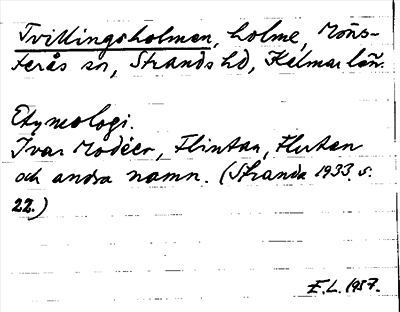 Tvillingsholmen, holme, Möns-
terås sn, Strands hd, Kalmar län.
Etymologi.
Ivar Modéer, Flintan, Flutan
och andra namn. (Stranda 1933 s.
22.)
E.L. 1957.